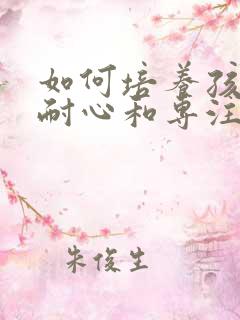 如何培养孩
耐心和专注
朱俊生